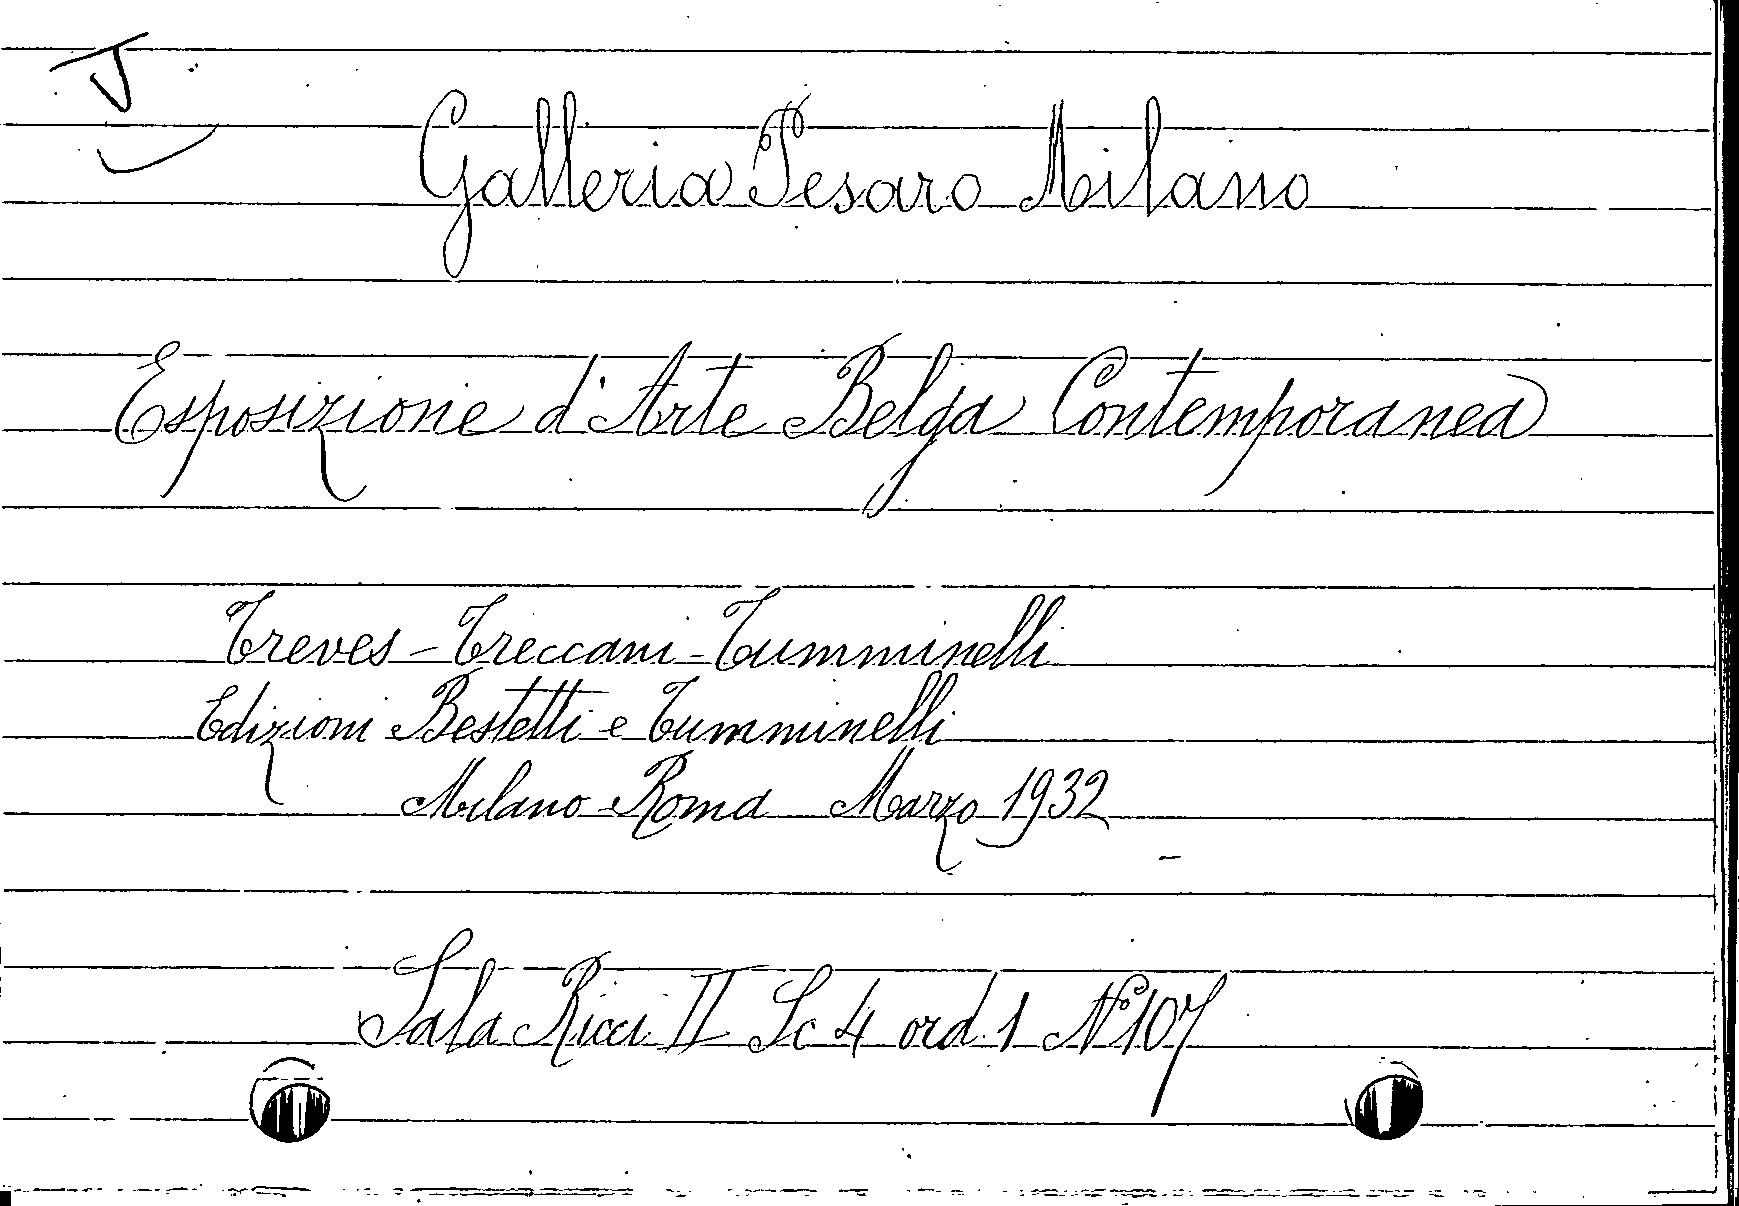 Galleria Pesaro Milano
Esposizione d'Arte Belga Contemporanea
Treves - Treccani - Tumminelli
Edizioni Bestetti e Tumminelli
Milano - Roma Marzo 1932
Sala Ricci II Sc 4 ord. 1 N° 107